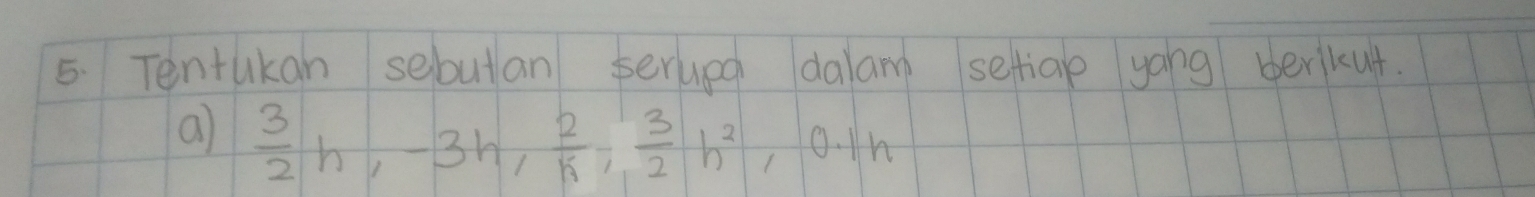 5. Tentukan sebutan serupa dalam setiap yang berikut.
a) 3/2 h, -3h, 2/h, 3/2 h², 0.1h